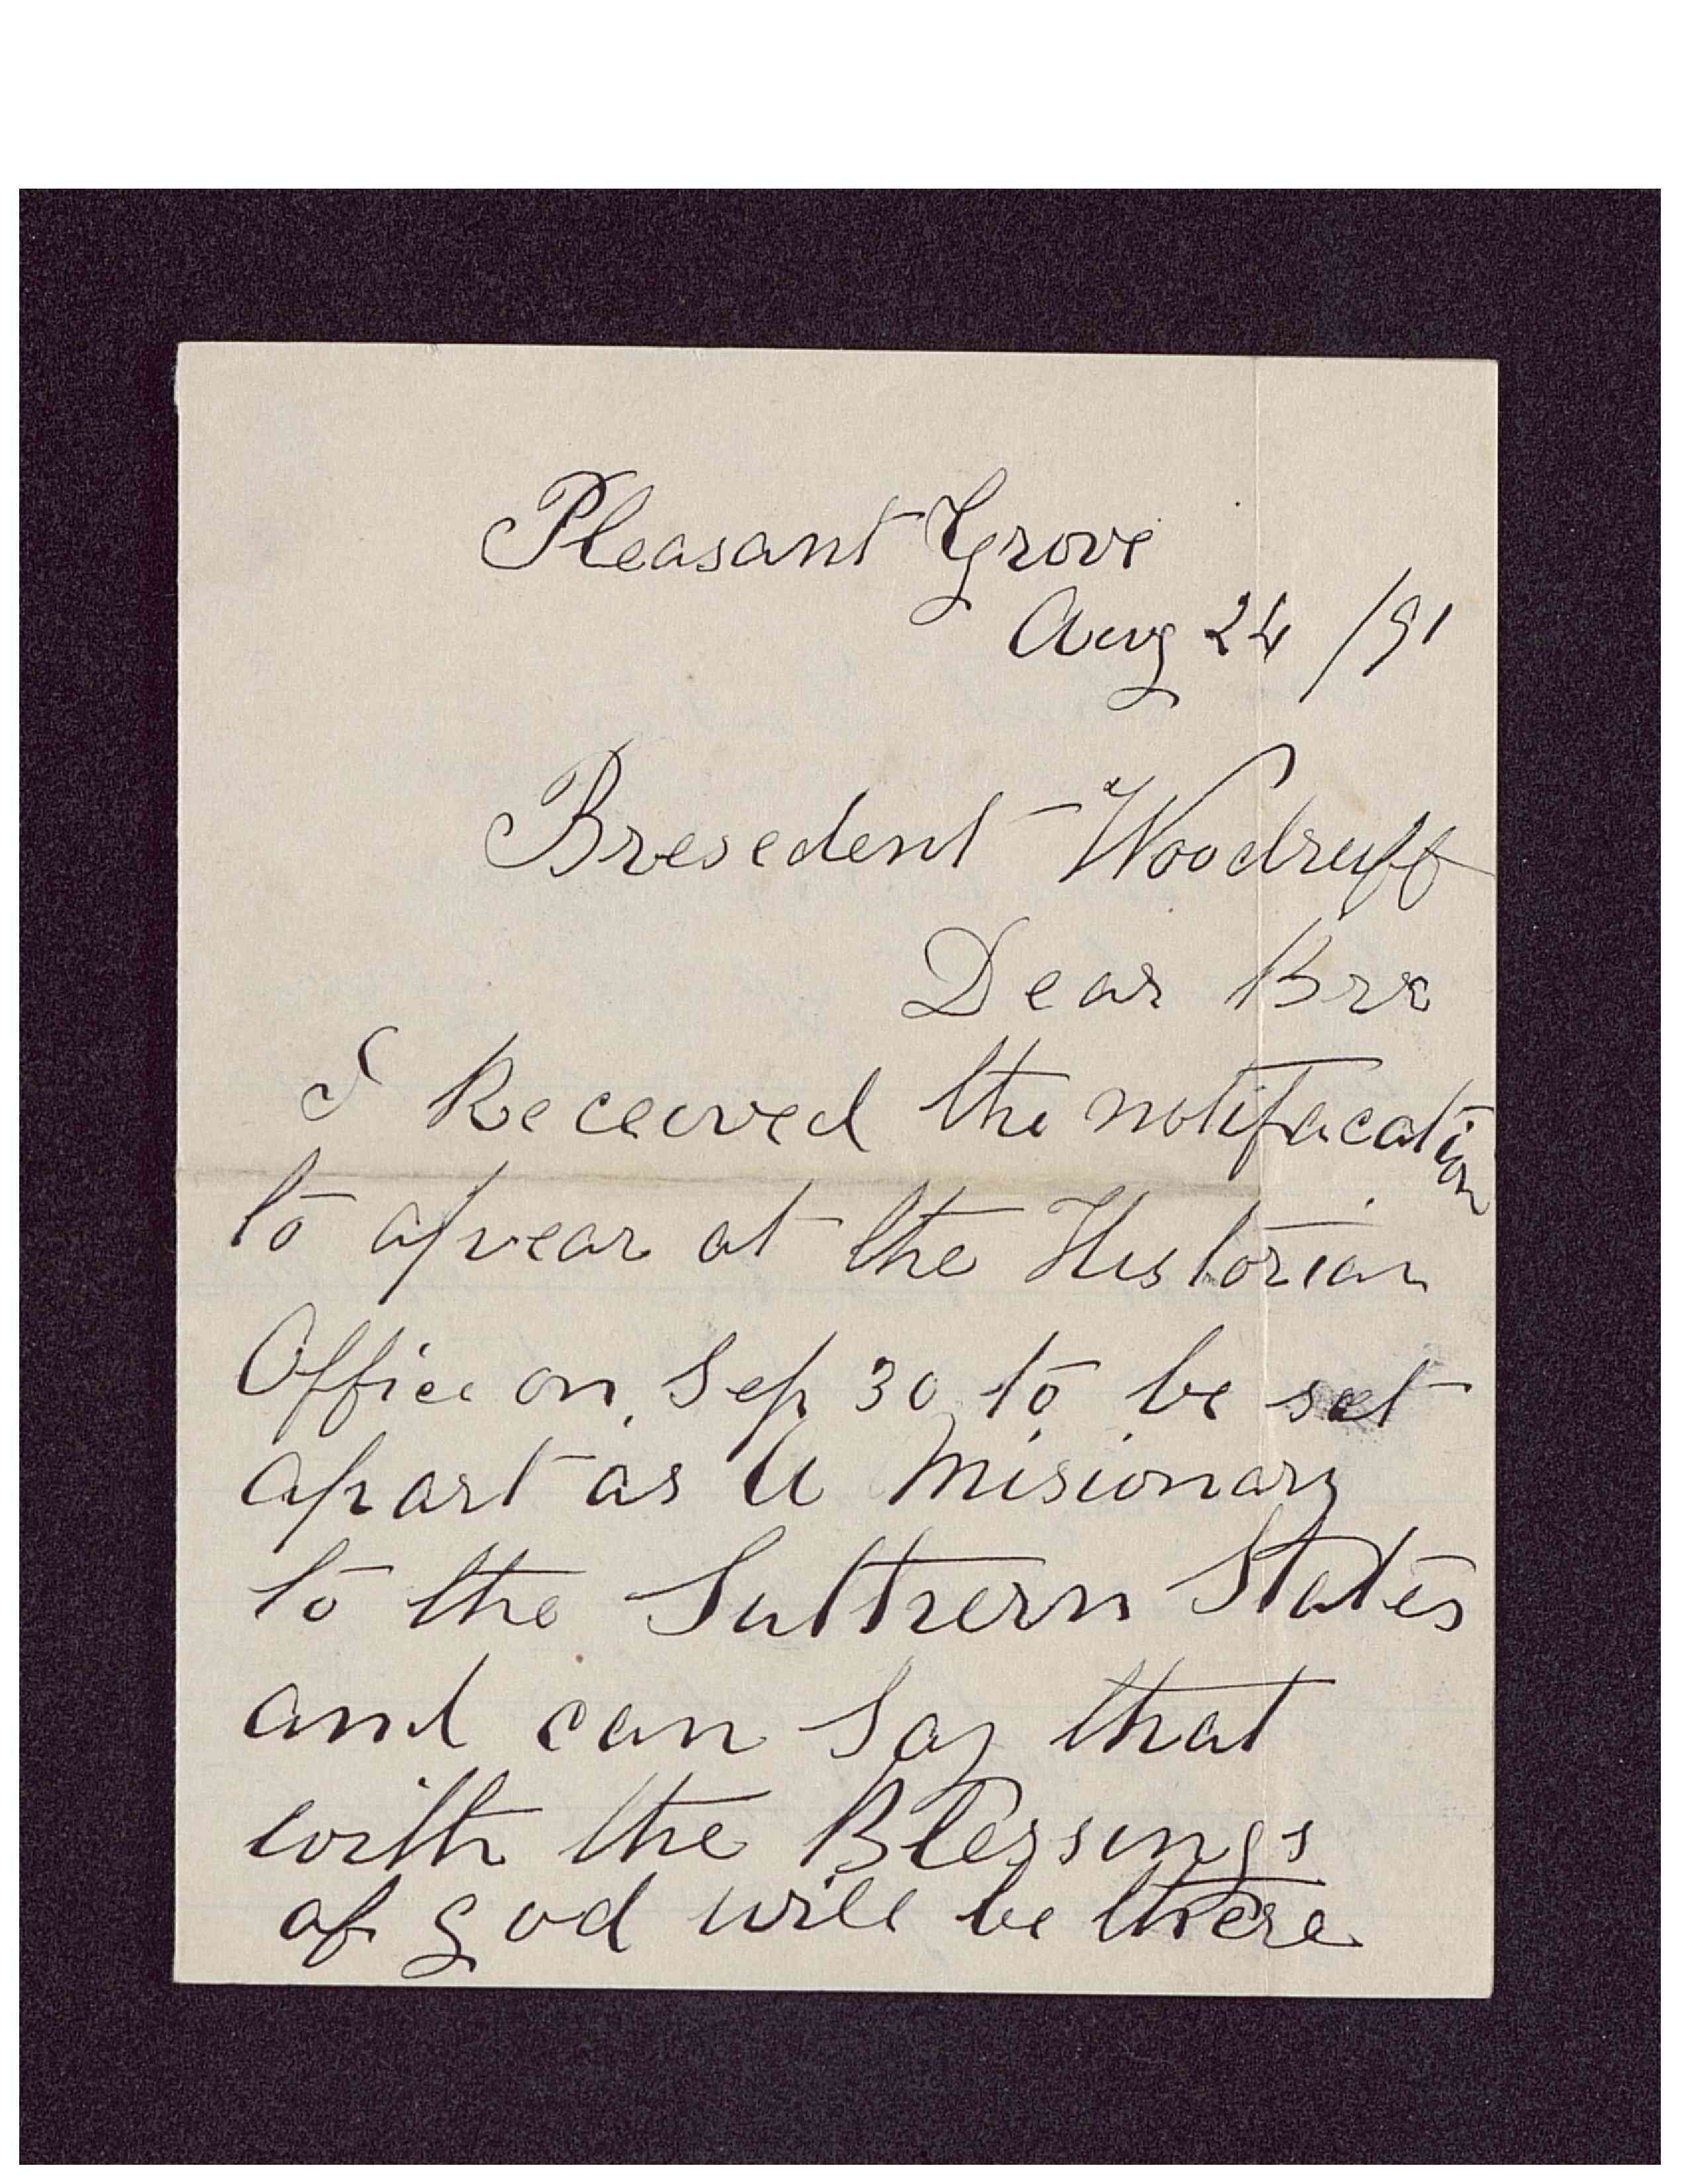 Pleasant Grove
Aug 24 /91
Bresedent Woodruff
Dear Bro
I Receeived the notifacation
to apear at the Historian
Office on Sep 30 to be set
apart as a Misionary
to the Suthern States
and can say that
with the Blessings
of god will be there